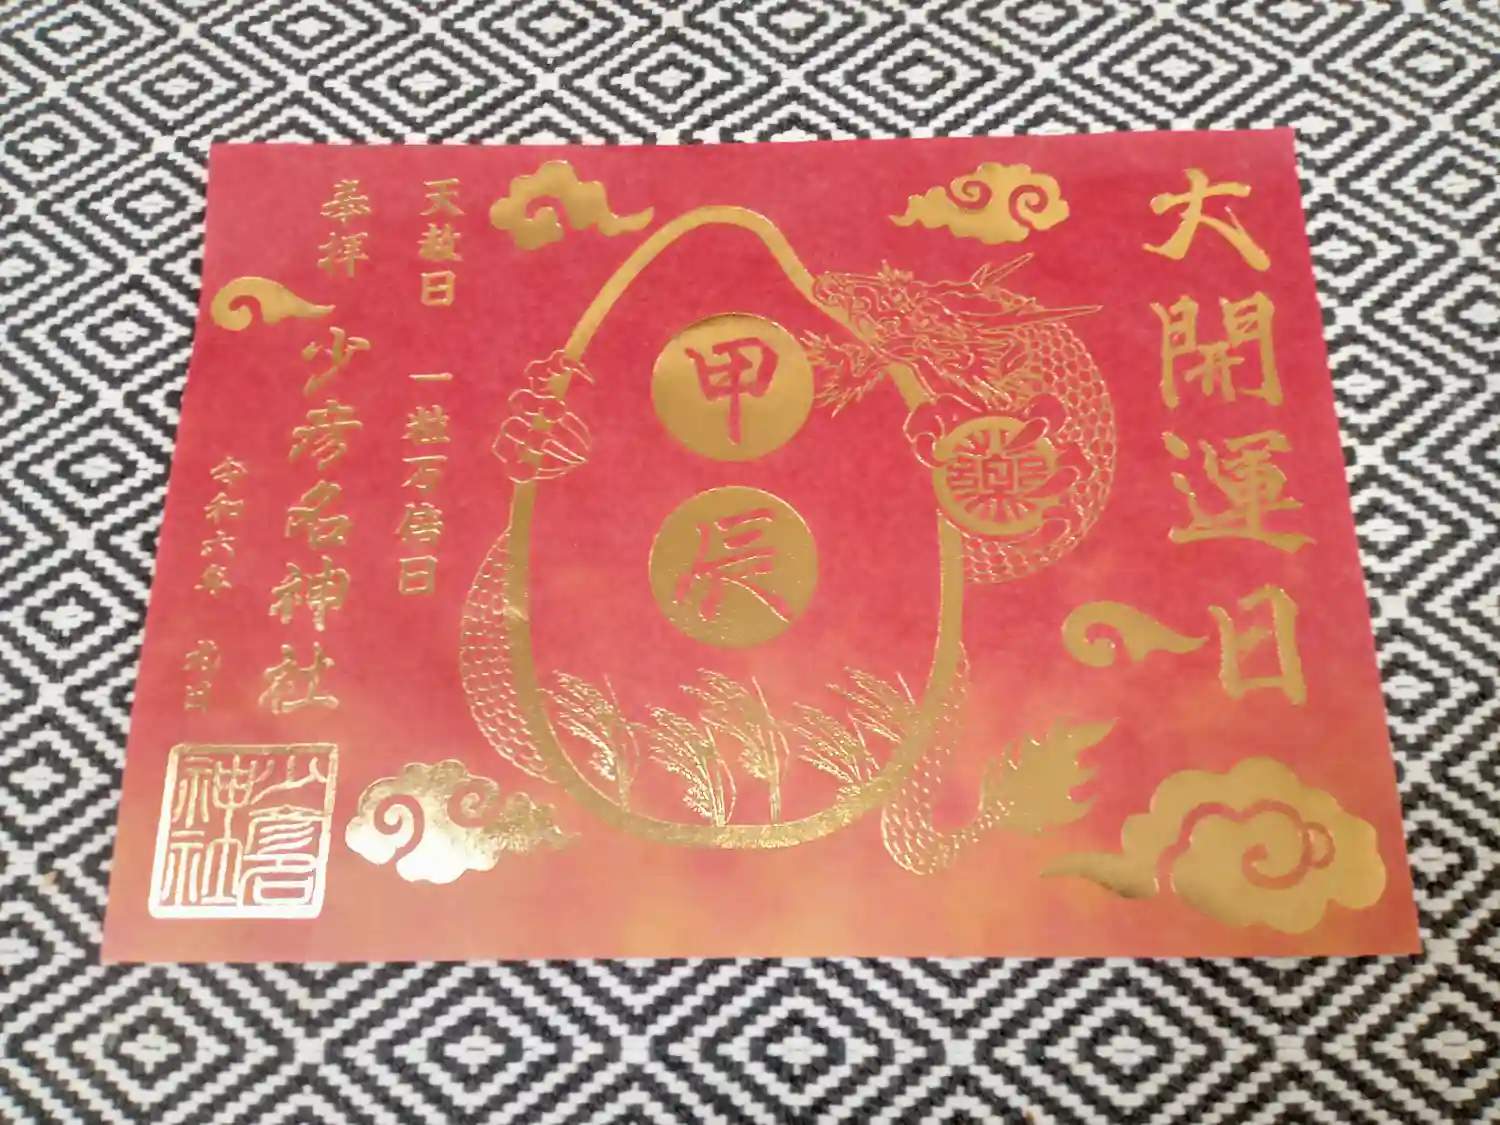 大開運日
薬
甲
辰
天赦日 一粒万倍日
奉拝
少彦名神社
令和六年 月 日
少彦名
神社